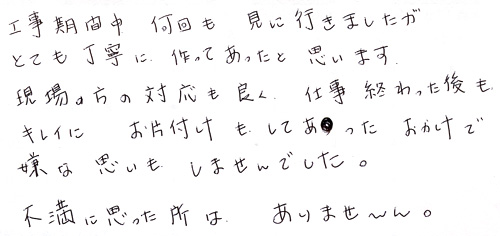 工事期間中 何回も 見に行きましたが
とても丁寧に 作ってあったと 思います.
現場の方の対応も良く. 仕事終わった後も
キレイに お片付けも してあった おかげで
嫌な思いも しませんでした。
不満に思った所は. ありませ〜ん。